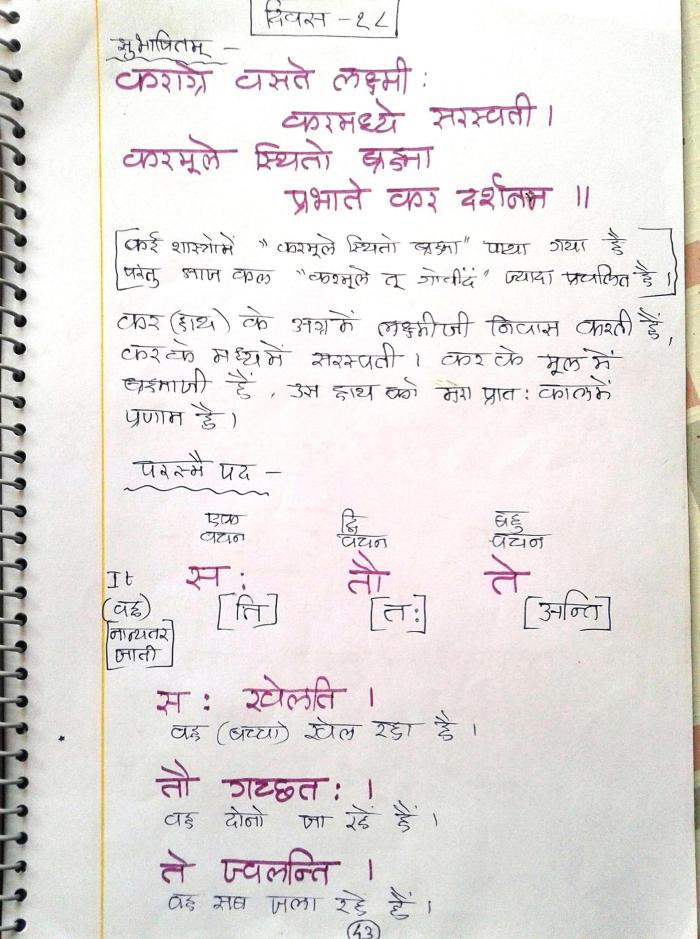 दिवस - १८
सुभाषितम् -
कराग्रे वसते लक्ष्मी :
करमध्ये सरस्वती ।
करमूले स्थितो ब्रह्मा
प्रभाते कर दर्शनम ॥
कई शास्त्रोमें "करमूले स्थितो ब्रह्मा" पाया गया है
परंतु आज कल "करमूले तू गोवींदं" ज्यादा प्रचलित है ।
कर (हाथ) के अग्रमें लक्ष्मीजी निवास करती हैं,
करके मध्यमें सरस्वती । कर के मूल में
ब्रह्माजी हैं , उस हाथ को मेरा प्रात : कालमें
प्रणाम है ।
परस्मै पद -
एक वचन द्वि वचन बहु वचन
It स : तौ ते
(वह) [ति] [त:] [अन्ति]
नान्यतर
जाती
स : खेलति ।
वह (बच्चा) खेल रहा है ।
तौ गच्छत : ।
वह दोनो जा रहें हैं ।
ते ज्वलन्ति ।
वह सब जला रहें हैं ।
43